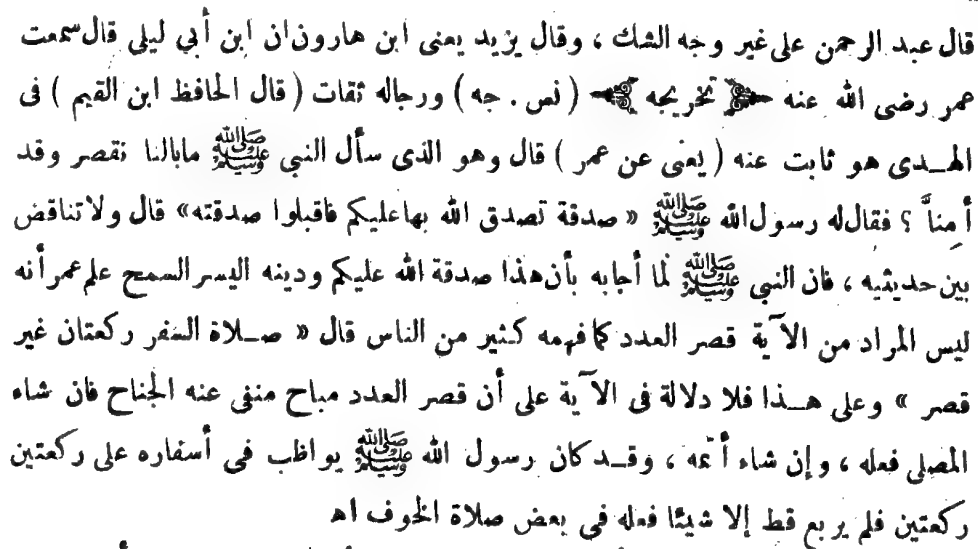 قال عبد الرحمن على غير وجه الشك ، وقال يزيد يعنى ابن هارون ان ابن أبي ليلى قال سمعت
عمر رضى الله عنه تخريجه ( نس . جه ) ورجاله ثقات ( قال الحافظ ابن القيم ) فى
الهــدى هو ثابت عنه ( يعنى عن عمر ) قال وهو الذى سأل النبى ﷺ مابالنا نقصر وقد
أمِنَّا ؟ فقال له رسول الله ﷺ « صدقة تصدق الله بها عليكم فاقبلوا صدقته» قال ولا تناقض
بين حديثيه ، فان النبي ﷺ لما أجابه بأن هذا صدقة الله عليكم ودينه اليسر السمح علم عمر أنه
ليس المراد من الآية قصر العدد كما فهمه كثير من الناس قال « صــلاة السفر ركعتان غير
قصر » وعلى هــذا فلا دلالة فى الآية على أن قصر العدد مباح منفى عنه الجناح فان شاء
المصلى فعله ، وإن شاء أتمه ، وقــد كان رسول الله ﷺ يواظب فى أسفاره على ركعتين
ركعتين فلم يربع قط إلا شيئا فعله فى بعض صلاة الخوف اهـ